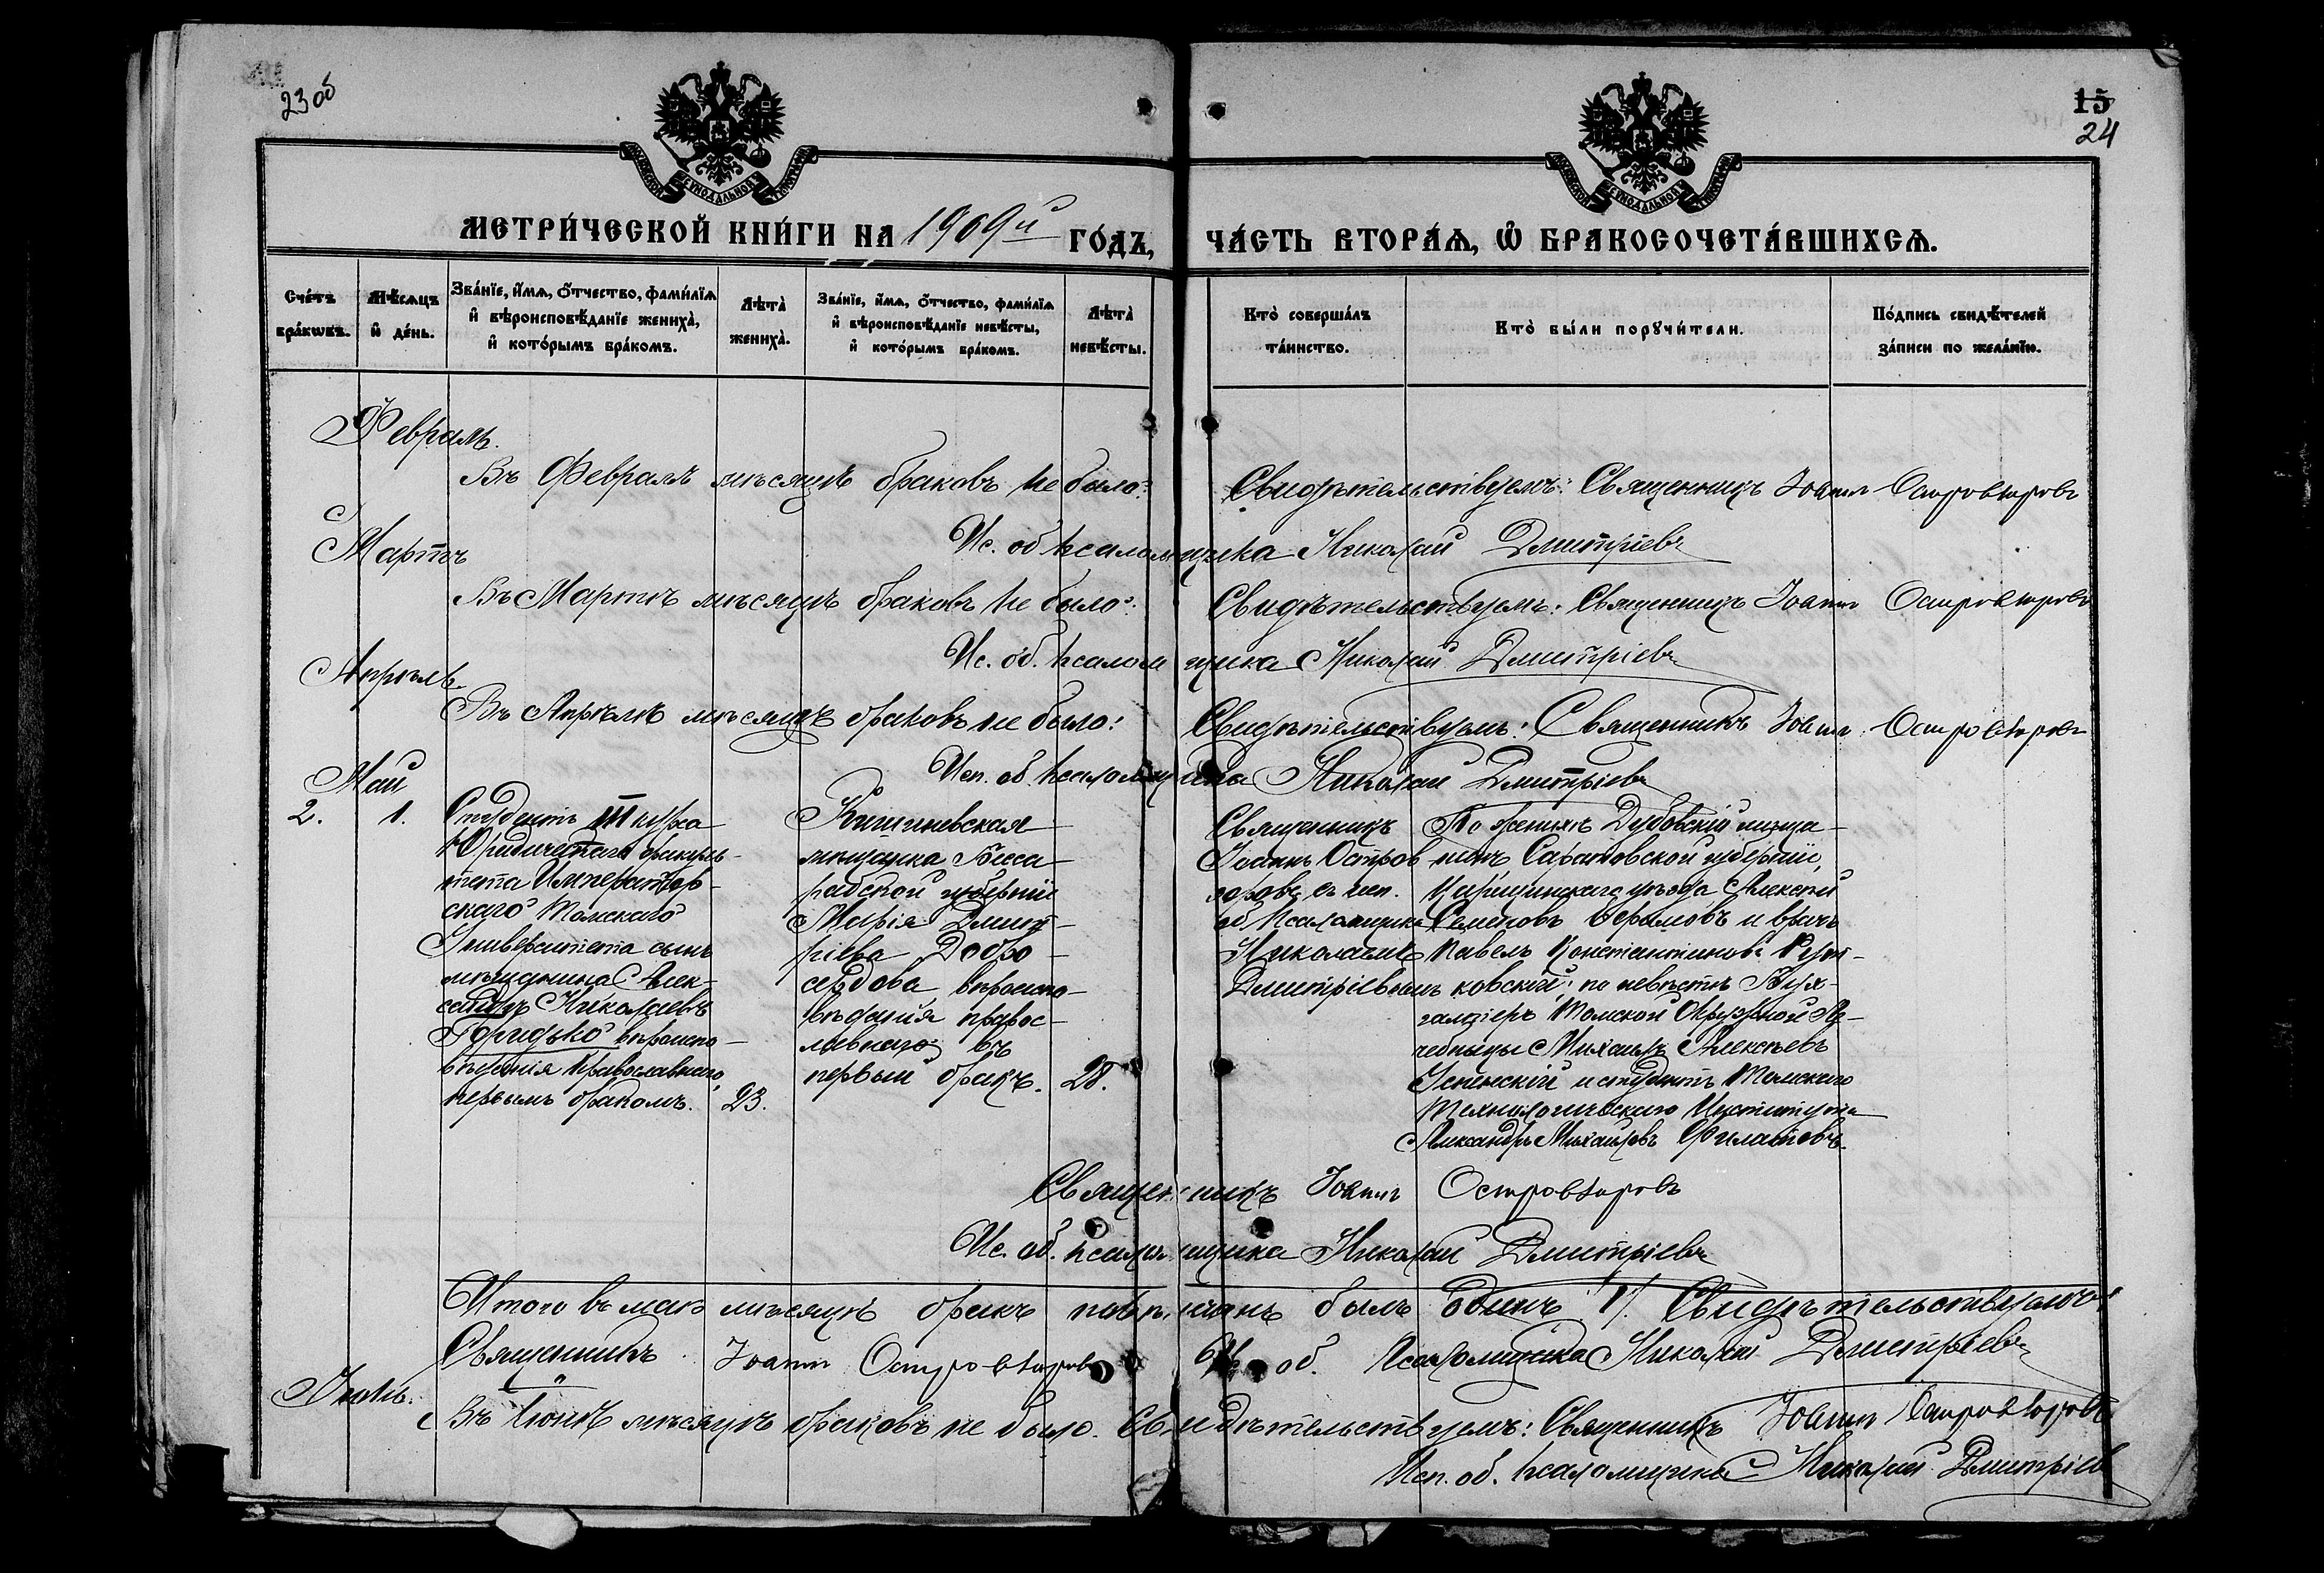 23 об
15
24
МЕТРИ́ЧЕСКОЙ КНИ́ГИ НА 1909й ГО́ДЪ,
ЧА́СТЬ ВТОРА́Ѧ, Ѡ҆ БРАКОСОЧЕТА́ВШИХСѦ.
Сче́тъ бра́кѡвъ.
Мѣ́сѧцъ и҆ де́нь.
Зва́нїе, и҆́мѧ, ѻ҆́тчество, фами́лїѧ
и҆ вѣроисповѣ́данїе жениха̀,
и҆ кото́рымъ бра́комъ.
Лѣта̀ жениха̀.
Зва́нїе, и҆́мѧ, ѻ҆́тчество, фами́лїѧ
и҆ вѣроисповѣ́данїе невѣ́сты,
и҆ кото́рымъ бра́комъ.
Лѣта̀ невѣ́сты.
Кто̀ соверша́лъ та́инство.
Кто̀ бы́ли порꙋчи́тели.
По́дпись свидѣ́телей за́писи по жела́нїю.
Февраль.
Въ Февралѣ мѣсяцѣ браковъ не было. Свидѣтельствуемъ: Священникъ Іоаннъ Островзоровъ
Ис. об псаломщика Николай Дмитріевъ
Мартъ
Въ Мартѣ мѣсяцѣ браковъ не было. Свидѣтельствуемъ: Священникъ Іоаннъ Островзоровъ
Ис. об. псаломщика Николай Дмитріевъ
Апрѣль.
Въ Апрѣлѣ мѣсяцѣ браковъ не было. Свидѣтельствуемъ: Священникъ Іоаннъ Островзоровъ
Исп. об. псаломщика Николай Дмитріевъ
Май
2. 1.
Студентъ III курса
Юридическаго факуль-
тета Император-
скаго Томскаго
Университета сынъ
мѣщанина Алек-
сандръ Николаевъ
вѣроиспо-
вѣданія Православнаго,
первымъ бракомъ. 23.
Кишиневская
мѣщанка Бесса-
рабской губерніи
Марія Дмит-
ріева Добро-
сердова вѣроиспо-
вѣданія правос-
лавнаго въ
первый бракъ. 28.
Священникъ
Іоаннъ Островзоровъ
съ исп.
об псаломщика
Николаемъ
Дмитріевымъ
По женихѣ Дубовскій мѣща-
нинъ Саратовской губерніи,
Царицынскаго уѣзда Алексѣй
Семеновъ и врачъ
Павелъ Константиновъ
по невѣстѣ Бух-
галтеръ Томской Окружной Лѣ-
чебницы Михаилъ Алексѣевъ
Успенскій и студентъ Томскаго
Технологическаго Института
Александръ Михайловъ Филатовъ.
Священникъ Іоаннъ Островзоровъ
Ис. об. псаломщика Николай Дмитріевъ
Итого въ маѣ мѣсяцѣ бракъ повѣнчанъ былъ одинъ /1/. Свидѣтельствуемъ:
Священникъ Іоаннъ Островзоровъ Ис. об. Псаломщика Николай Дмитріевъ
Іюнь.
Въ Іюнѣ мѣсяцѣ браковъ не было. Свидѣтельствуемъ: Священникъ Іоаннъ Островзоровъ
Исп. об. псаломщика Николай Дмитріевъ